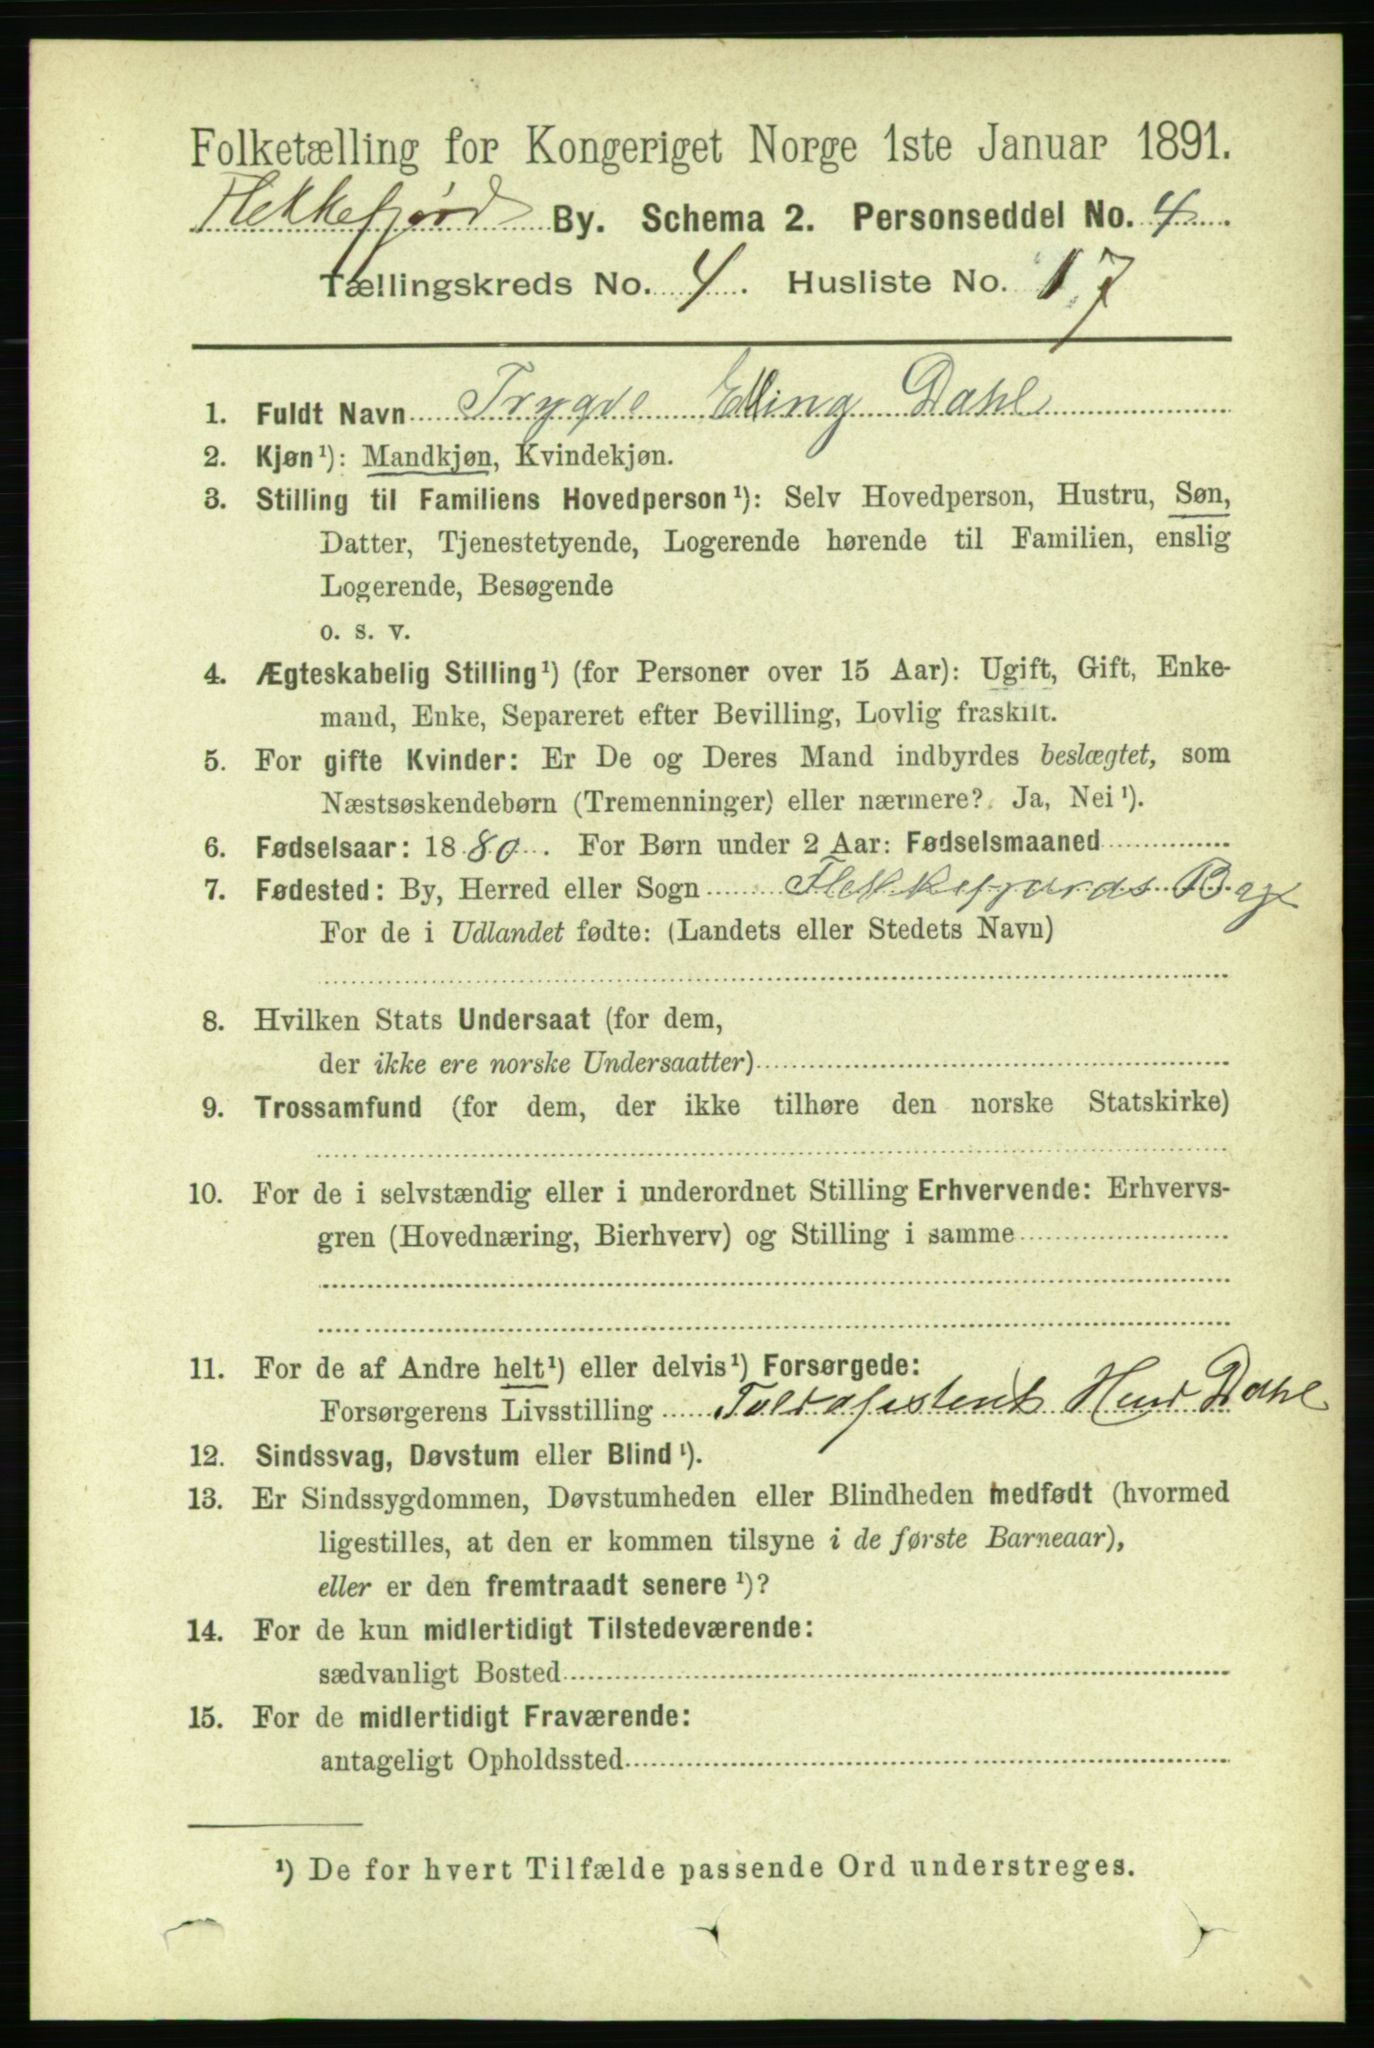 Folketælling for Kongeriget Norge 1ste Januar 1891.
Flekkefjord By. Schema 2. Personseddel No. 4
Tællingskreds No. 4. Husliste No. 17
1. Fuldt Navn Trygve Elling Dahl
2. Kjøn¹): Mandkjøn, Kvindekjøn.
3. Stilling til Familiens Hovedperson¹): Selv Hovedperson, Hustru, Søn,
Datter, Tjenestetyende, Logerende hørende til Familien, enslig
Logerende, Besøgende
o. s. v.
4. Ægteskabelig Stilling¹) (for Personer over 15 Aar): Ugift, Gift, Enke-
mand, Enke, Separeret efter Bevilling, Lovlig fraskilt.
5. For gifte Kvinder: Er De og Deres Mand indbyrdes beslægtet, som
Næstsøskendebørn (Tremenninger) eller nærmere? Ja, Nei¹).
6. Fødselsaar: 1880. For Børn under 2 Aar: Fødselsmaaned
7. Fødested: By, Herred eller Sogn Flekkefjords By
For de i Udlandet fødte: (Landets eller Stedets Navn)
8. Hvilken Stats Undersaat (for dem,
der ikke ere norske Undersaatter)
9. Trossamfund (for dem, der ikke tilhøre den norske Statskirke)
10. For de i selvstændig eller i underordnet Stilling Erhvervende: Erhvervs-
gren (Hovednæring, Bierhverv) og Stilling i samme
11. For de af Andre helt¹) eller delvis¹) Forsørgede:
Forsørgerens Livsstilling Toldassistent Hend Dahl
12. Sindssvag, Døvstum eller Blind¹).
13. Er Sindssygdommen, Døvstumheden eller Blindheden medfødt (hvormed
ligestilles, at den er kommen tilsyne i de første Barneaar),
eller er den fremtraadt senere¹)?
14. For de kun midlertidigt Tilstedeværende:
sædvanligt Bosted
15. For de midlertidigt Fraværende:
antageligt Opholdssted
¹) De for hvert Tilfælde passende Ord understreges.